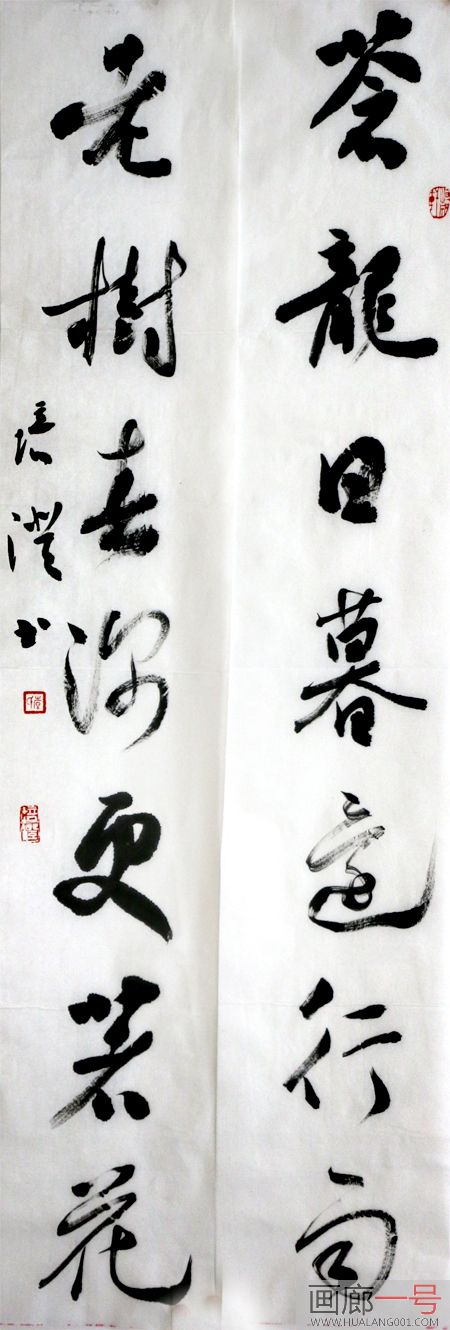 蒼龍日暮還行雨
老樹春深更著花
澄书
画廊一号
WWW.HUALANG001.COM